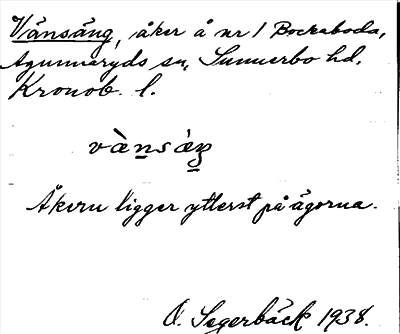 Vänsäng, åker å nr 1 Bockaboda,
Agunnaryds sn, Sunnerbo hd,
Kronob. l.
vä̀n̲sàŋ̲
Åkern ligger ytterst på ägorna.
O. Segerbäck 1938.